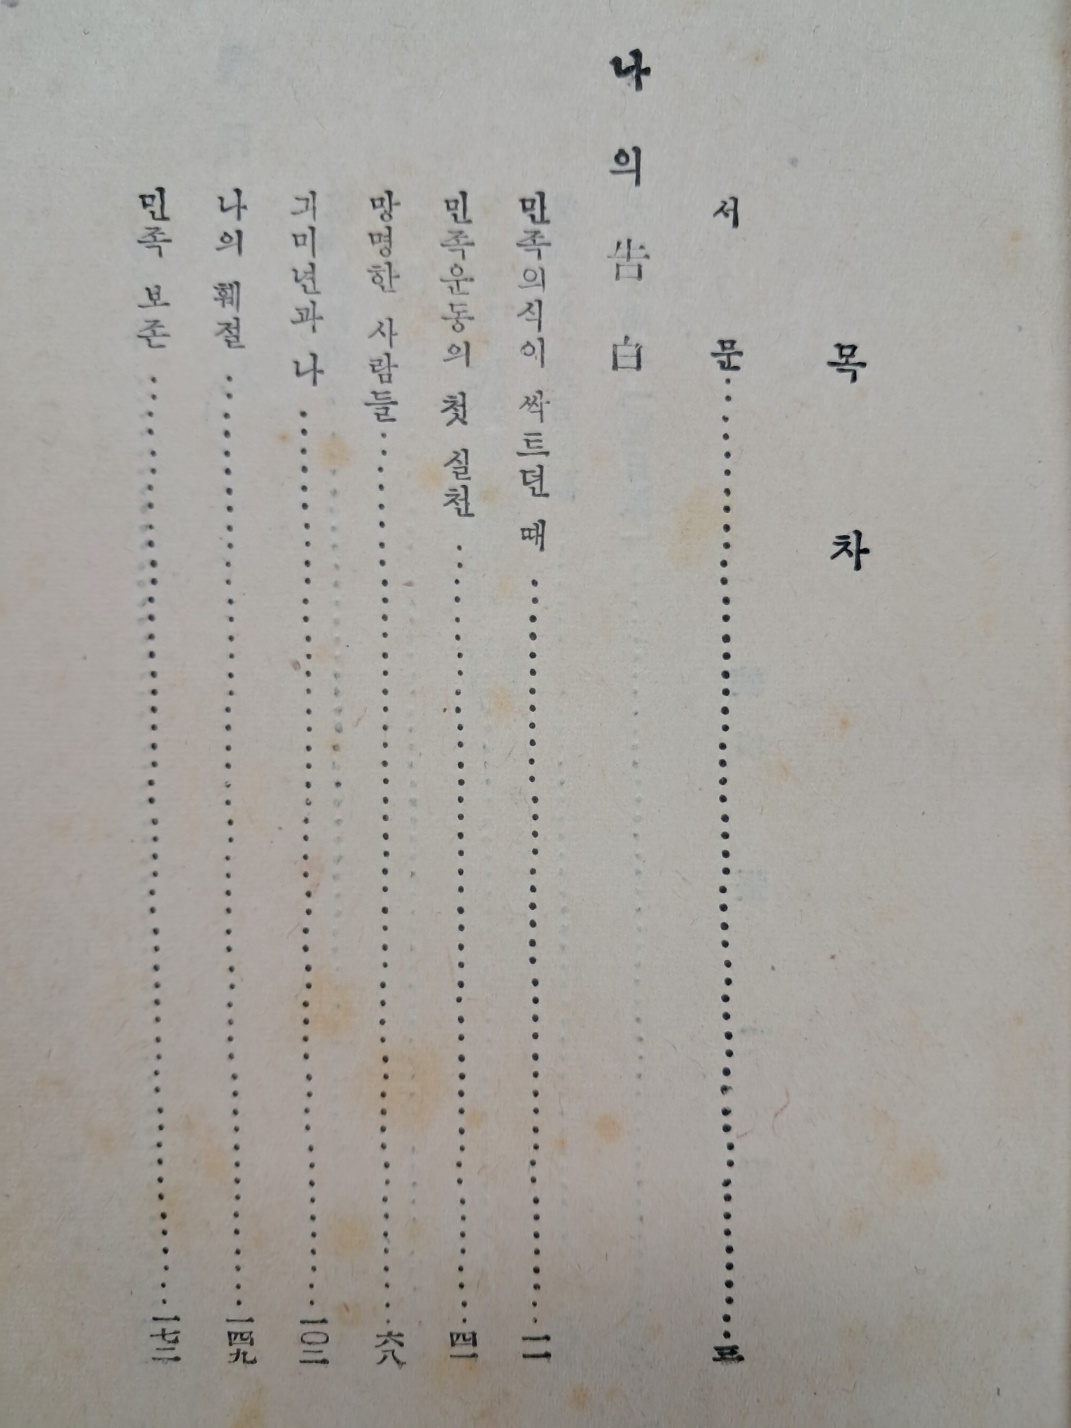 목차
서문……三
나의 告白
민족의식이 싹트던 때……一一
민족운동의 첫 실천……四一
망명한 사람들……六八
기미년과 나……一〇二
나의 훼절……一四九
민족 보존……一七二